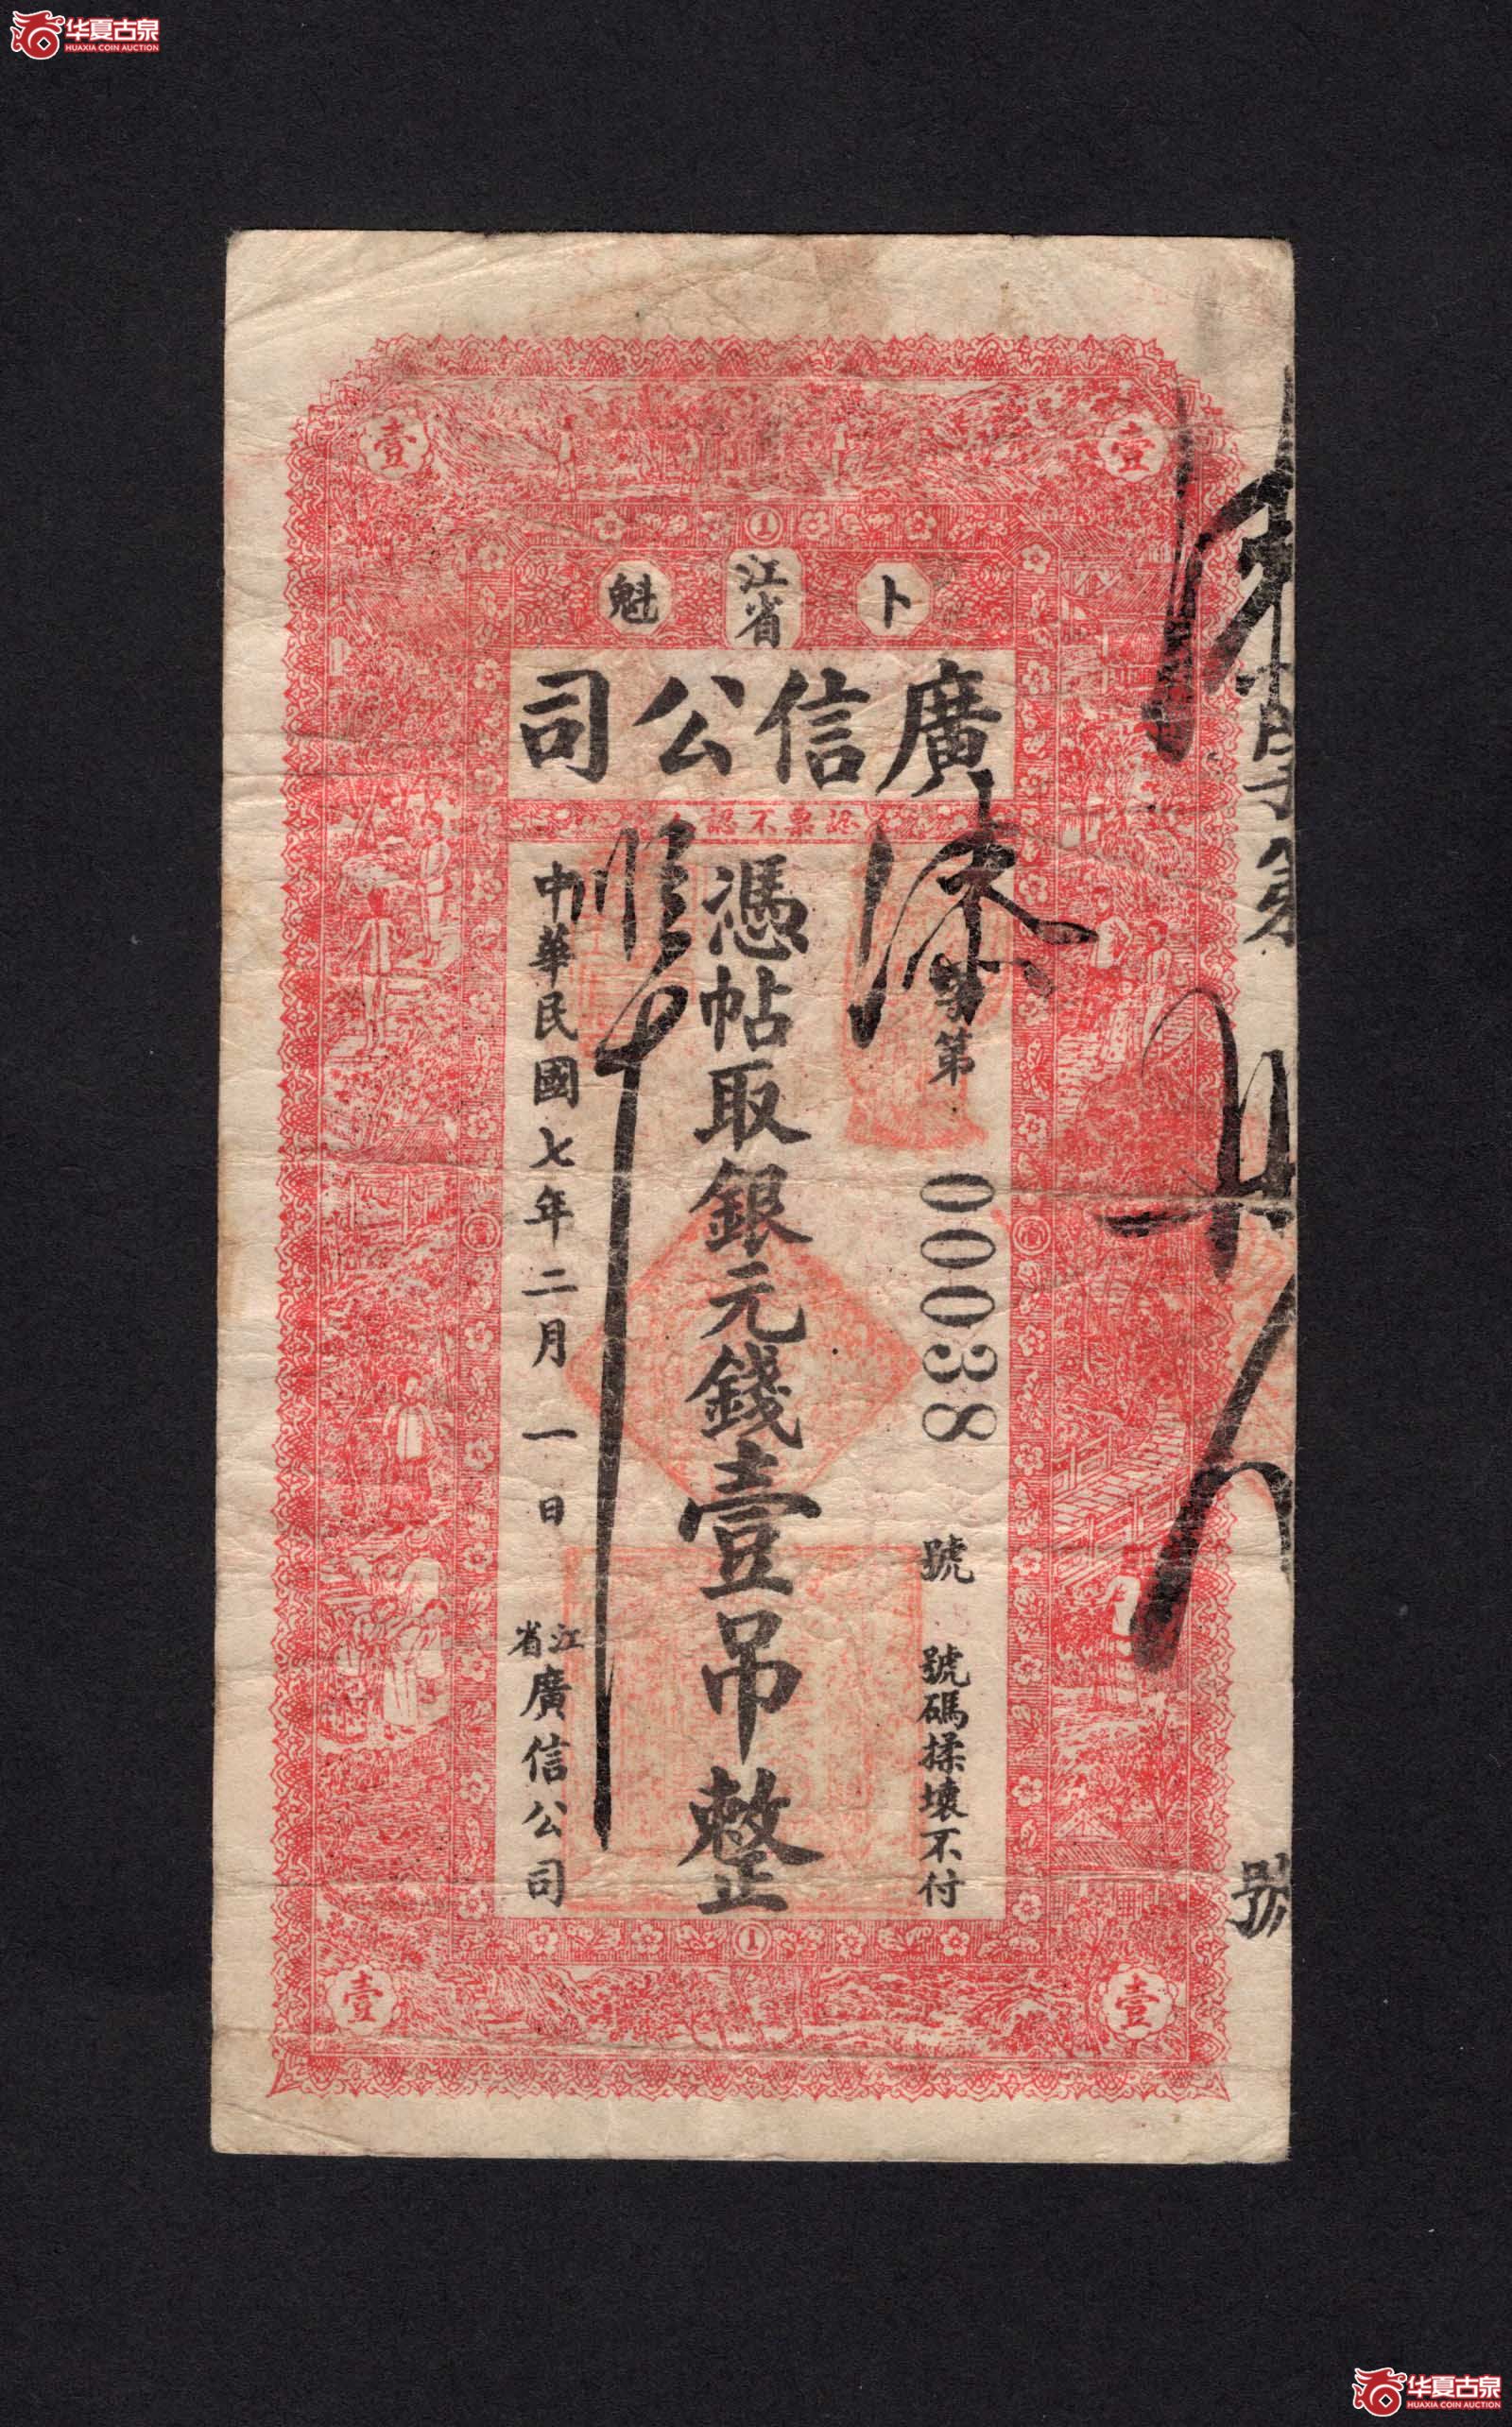 华夏古泉
HUAXIA COIN AUCTION
壹
壹
1
卜
江省
魁
廣信公司
票不認
字第
00038
號
號碼揉壞不付
憑帖取銀元錢壹吊整
中華民國七年二月一日
江省
廣信公司
號
1
壹
壹
华夏古泉
HUAXIA COIN AUCTION